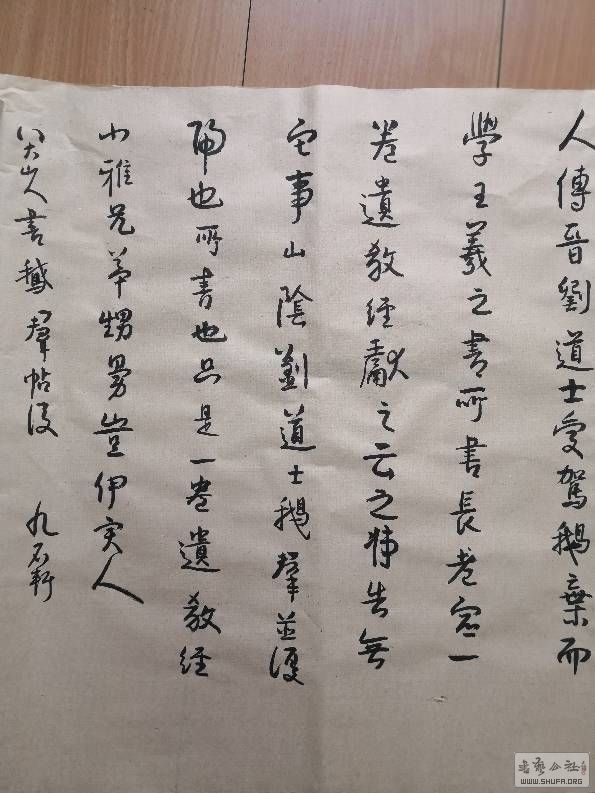 人傳晉劉道士愛駕鵝棄而
學王羲之書所書長老一
卷遺教經獻之云之告無
它事山陰劉道士鵝群並復
歸也所書也只是一卷遺教經
小雅兄弟甥舅豈伊人
八大山人書鵝群帖後
九石軒
書法公社
WWW.SHUFA.ORG